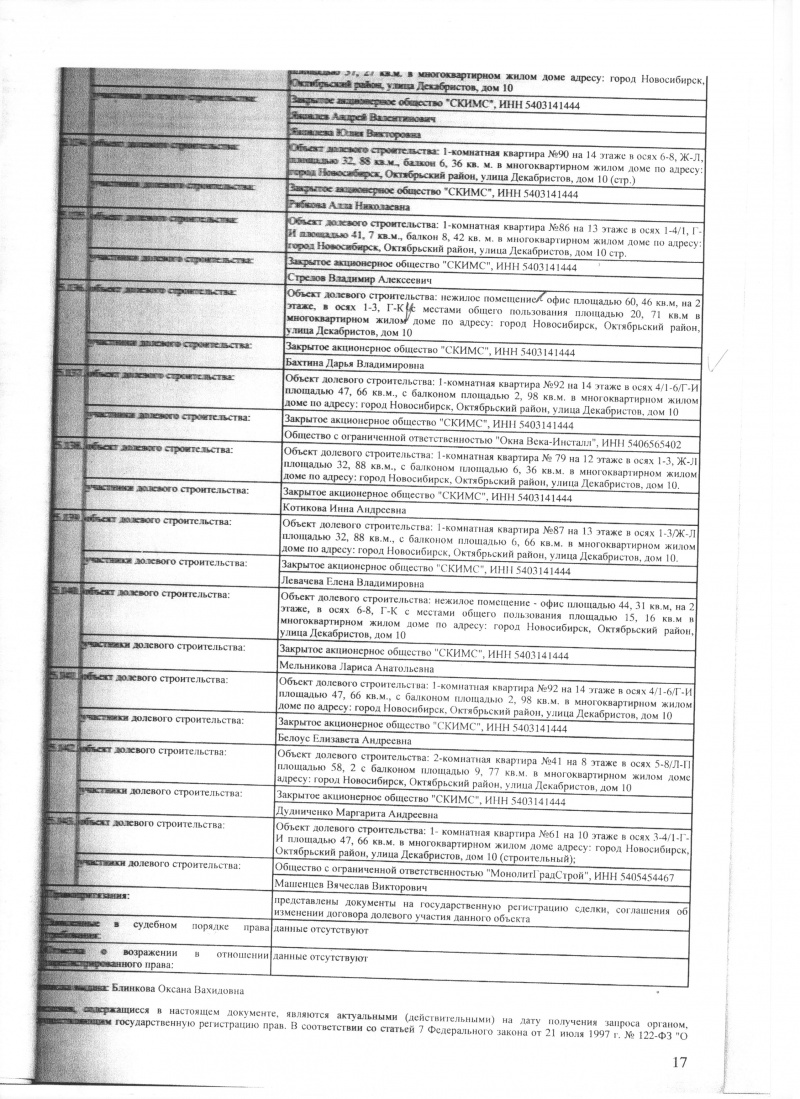 площадью 37, 27 кв.м. в многоквартирном жилом доме адресу: город Новосибирск,
Октябрьский район, улица Декабристов, дом 10
участники долевого строительства:
Закрытое акционерное общество "СКИМС", ИНН 5403141444
Яковлев Андрей Валентинович
Яковлева Юлия Викторовна
5.134. объект долевого строительства:
Объект долевого строительства: 1-комнатная квартира №90 на 14 этаже в осях 6-8, Ж-Л,
площадью 32, 88 кв.м., балкон 6, 36 кв. м. в многоквартирном жилом доме по адресу:
город Новосибирск, Октябрьский район, улица Декабристов, дом 10 (стр.)
участники долевого строительства:
Закрытое акционерное общество "СКИМС", ИНН 5403141444
Рябкова Алла Николаевна
5.135. объект долевого строительства:
Объект долевого строительства: 1-комнатная квартира №86 на 13 этаже в осях 1-4/1, Г-
И площадью 41, 7 кв.м., балкон 8, 42 кв. м. в многоквартирном жилом доме по адресу:
город Новосибирск, Октябрьский район, улица Декабристов, дом 10 стр.
участники долевого строительства:
Закрытое акционерное общество "СКИМС", ИНН 5403141444
Стрелов Владимир Алексеевич
5.136. объект долевого строительства:
Объект долевого строительства: нежилое помещение - офис площадью 60, 46 кв.м, на 2
этаже, в осях 1-3, Г-К с местами общего пользования площадью 20, 71 кв.м в
многоквартирном жилом доме по адресу: город Новосибирск, Октябрьский район,
улица Декабристов, дом 10
участники долевого строительства:
Закрытое акционерное общество "СКИМС", ИНН 5403141444
Бахтина Дарья Владимировна
5.137. объект долевого строительства:
Объект долевого строительства: 1-комнатная квартира №92 на 14 этаже в осях 4/1-6/Г-И
площадью 47, 66 кв.м., с балконом площадью 2, 98 кв.м. в многоквартирном жилом
доме по адресу: город Новосибирск, Октябрьский район, улица Декабристов, дом 10
участники долевого строительства:
Закрытое акционерное общество "СКИМС", ИНН 5403141444
Общество с ограниченной ответственностью "Окна Века-Инсталл", ИНН 5406565402
5.138. объект долевого строительства:
Объект долевого строительства: 1-комнатная квартира № 79 на 12 этаже в осях 1-3, Ж-Л
площадью 32, 88 кв.м., с балконом площадью 6, 36 кв.м. в многоквартирном жилом
доме по адресу: город Новосибирск, Октябрьский район, улица Декабристов, дом 10.
участники долевого строительства:
Закрытое акционерное общество "СКИМС", ИНН 5403141444
Котикова Инна Андреевна
5.139. объект долевого строительства:
Объект долевого строительства: 1-комнатная квартира №87 на 13 этаже в осях 1-3/Ж-Л
площадью 32, 88 кв.м., с балконом площадью 6, 66 кв.м. в многоквартирном жилом
доме по адресу: город Новосибирск, Октябрьский район, улица Декабристов, дом 10.
участники долевого строительства:
Закрытое акционерное общество "СКИМС", ИНН 5403141444
Левачева Елена Владимировна
5.140. объект долевого строительства:
Объект долевого строительства: нежилое помещение - офис площадью 44, 31 кв.м, на 2
этаже, в осях 6-8, Г-К с местами общего пользования площадью 15, 16 кв.м в
многоквартирном жилом доме по адресу: город Новосибирск, Октябрьский район,
улица Декабристов, дом 10
участники долевого строительства:
Закрытое акционерное общество "СКИМС", ИНН 5403141444
Мельникова Лариса Анатольевна
5.141. объект долевого строительства:
Объект долевого строительства: 1-комнатная квартира №92 на 14 этаже в осях 4/1-6/Г-И
площадью 47, 66 кв.м., с балконом площадью 2, 98 кв.м. в многоквартирном жилом
доме по адресу: город Новосибирск, Октябрьский район, улица Декабристов, дом 10
участники долевого строительства:
Закрытое акционерное общество "СКИМС", ИНН 5403141444
Белоус Елизавета Андреевна
5.142. объект долевого строительства:
Объект долевого строительства: 2-комнатная квартира №41 на 8 этаже в осях 5-8/Л-П
площадью 58, 2 с балконом площадью 9, 77 кв.м. в многоквартирном жилом доме
адресу: город Новосибирск, Октябрьский район, улица Декабристов, дом 10
участники долевого строительства:
Закрытое акционерное общество "СКИМС", ИНН 5403141444
Дудниченко Маргарита Андреевна
5.143. объект долевого строительства:
Объект долевого строительства: 1- комнатная квартира №61 на 10 этаже в осях 3-4/1-Г-
И площадью 47, 66 кв.м. в многоквартирном жилом доме адресу: город Новосибирск,
Октябрьский район, улица Декабристов, дом 10 (строительный);
участники долевого строительства:
Общество с ограниченной ответственностью "МонолитГрадСтрой", ИНН 5405454467
Машенцев Вячеслав Викторович
Правопритязания:
представлены документы на государственную регистрацию сделки, соглашения об
изменении договора долевого участия данного объекта
Заявленные в судебном порядке права
требования:
данные отсутствуют
Отметка о возражении в отношении
зарегистрированного права:
данные отсутствуют
Выписка выдана: Блинкова Оксана Вахидовна
содержащиеся в настоящем документе, являются актуальными (действительными) на дату получения запроса органом,
государственную регистрацию прав. В соответствии со статьей 7 Федерального закона от 21 июля 1997 г. № 122-ФЗ "О
17